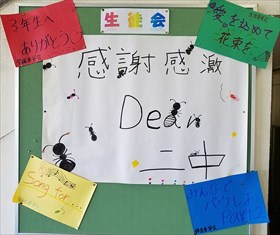 生徒会
3年生へ
ありがとう
愛を込めて
花束を
感謝感激
Dear
二中
Song for...
みんなで